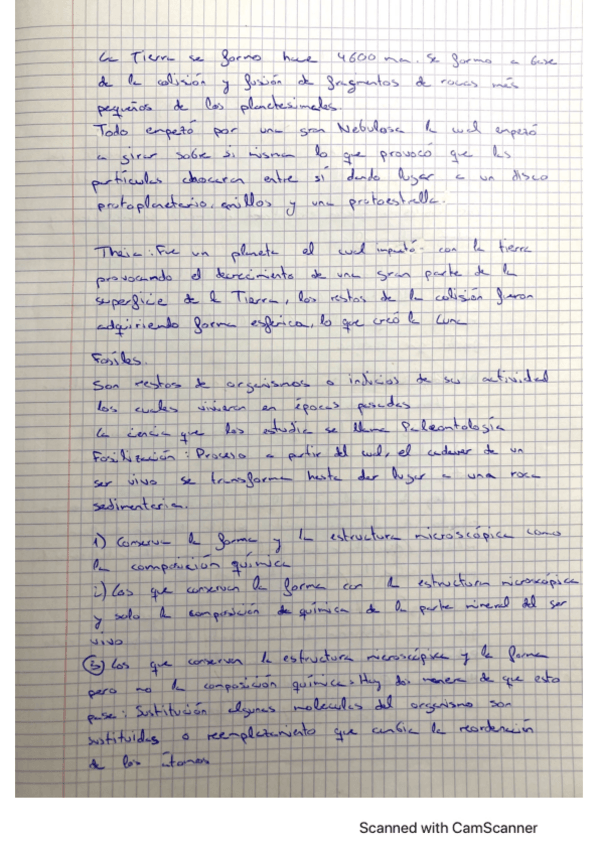 La Tierra se formo hace 4600 m.a. Se formo a base
de la colisión y fusión de fragmentos de rocas más
pequeños de los planetesimales.
Todo empezó por una gran Nebulosa la cual empezó
a girar sobre si misma lo que provocó que las
partículas chocaran entre sí dando lugar a un disco
protoplanetario, anillos y una protoestrella.
Theia: Fue un planeta el cual impactó con la tierra
provocando el de una gran parte de la
superficie de la Tierra, los restos de la colisión fueron
adquiriendo forma esférica, lo que creó la Luna
Fosiles.
Son restos de organismos o indicios de su actividad
los cuales vivieron en épocas pasadas
la ciencia que los estudia se llama Paleontología
Fosilización: Proceso a partir del cual, el cadaver de un
ser vivo se transforma hasta dar lugar a una roca
sedimentaria.
1) Conserva la forma y la estructura microscópica como
la composición química
2) Los que conservan la forma con la estructura microscópica
y solo la composición de química de la parte mineral del ser
vivo
3) Los que conservan la estructura microscópica y la forma
pero no la composición química. Hay dos manera de que esto
pase: Sustitución algunas moleculas del organismo son
sustituidas o reemplazamiento que cambia la reordenación
de los átomos
Scanned with CamScanner